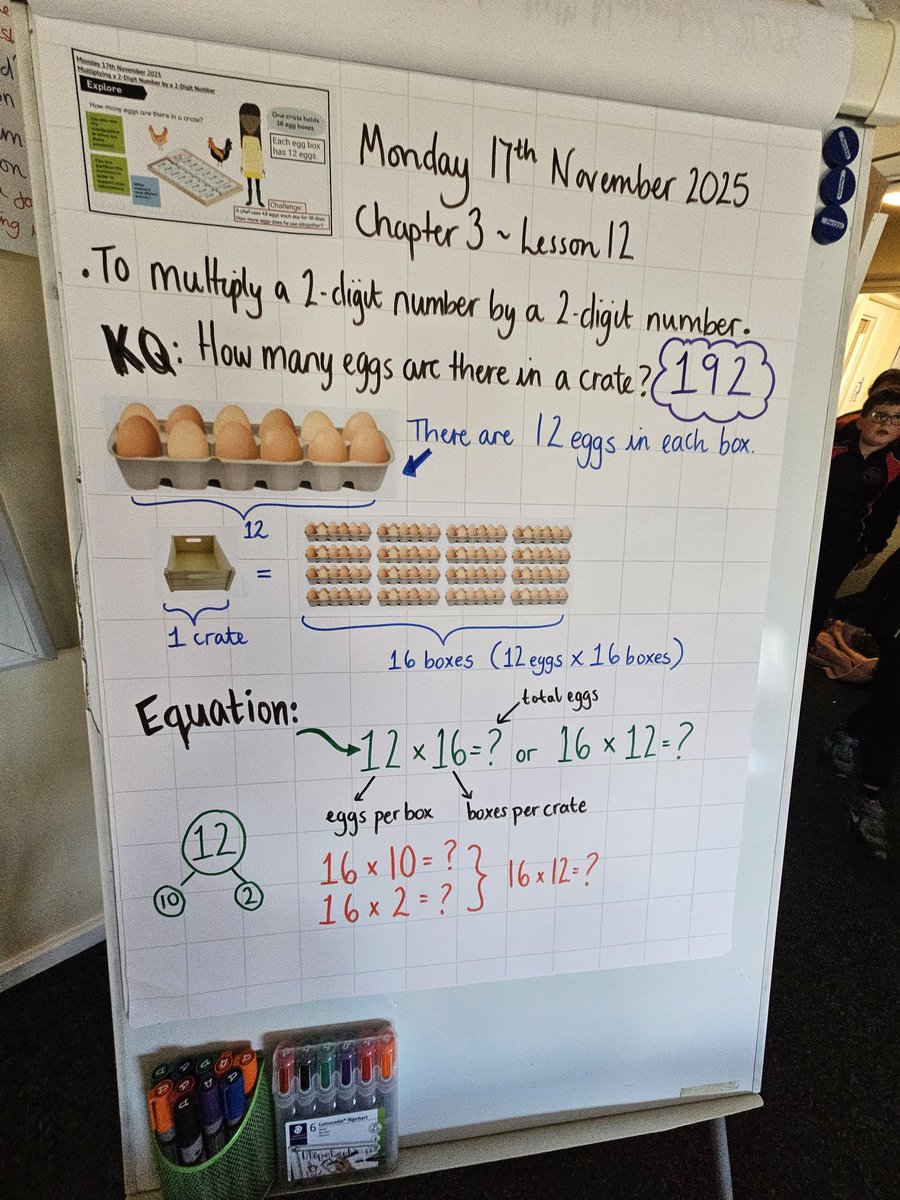 Monday 17th November 2025
Multiplying a 2-Digit Number by a 2-Digit Number
Explore
How many eggs are there in a crate?
One crate holds
16 egg boxes.
Each egg box
has 12 eggs.
Can you partition the
numbers in order
to support your
calculations?
Challenge:
A chef uses 48 eggs each day for 16 days.
How many eggs does he use altogether?
Monday 17th November 2025
Chapter 3 ~ Lesson 12
.To multiply a 2-digit number by a 2-digit number.
KQ: How many eggs are there in a crate? 192
There are 12 eggs in each box.
12
=
1 crate
16 boxes (12 eggs x 16 boxes)
Equation:
total eggs
12 x 16 = ? or 16 x 12 = ?
eggs per box
boxes per crate
12
10 2
16 x 10 = ?
16 x 2 = ?
} 16 x 12 = ?
STAEDTLER
6 Lumocolor flipchart